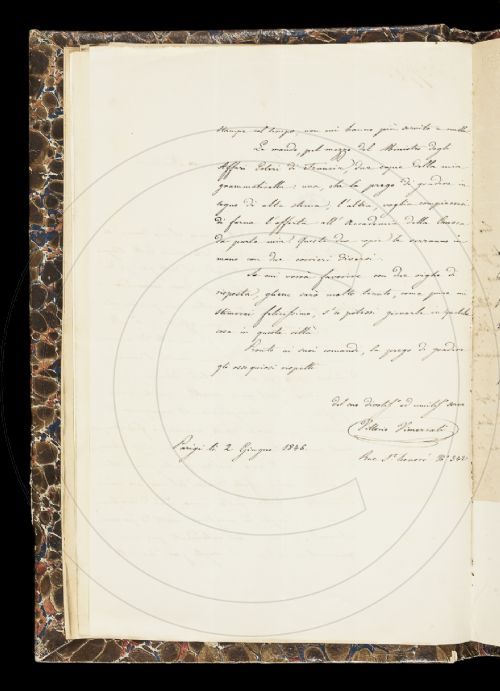 stampe col tempo, non mi hanno più servito a nulla
Le mando, pel mezzo del Ministro degli
Affari Esteri di Francia, due copie della mia
grammatichella: una, che la prego di gradire in
segno di alta stima, l'altra, voglia compiacersi
di farne l'offerta all'Accademia della Crusca
da parte mia. Queste due copie le verranno in
mano con due corrieri diversi.
Se mi vorrà favorire con due righe di
risposta, gliene sarò molto tenuto, come pure mi
stimerei felicissimo, s'io potessi giovarle in qualche
cosa in questa città.
Pronto ai suoi comandi, la prego di gradire
gli ossequiosi rispetti
del suo devotis.º ed umilis.º servo
Vittorio Vimercati
Parigi li 2 Giugno 1846
Rue St. Honoré Nº 342